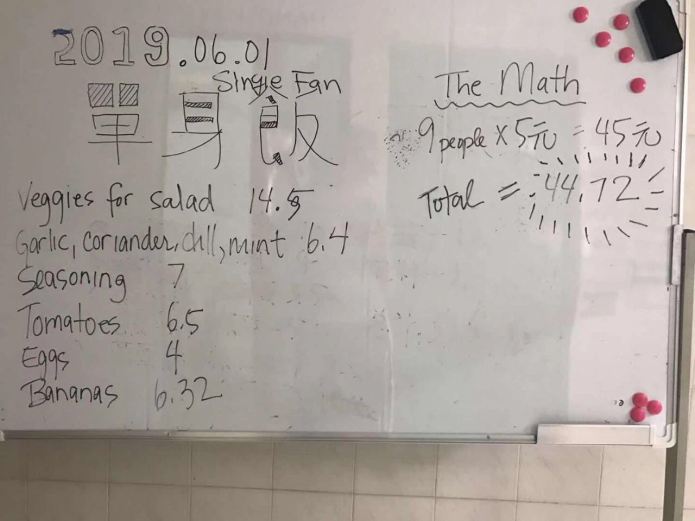 2019.06.01
Single Fan
單身飯
Veggies for salad 14.5
Garlic, coriander, chill, mint 6.4
Seasoning 7
Tomatoes 6.5
Eggs 4
Bananas 6.32
The Math
9 people x 5元 = 45元
Total = 44.72